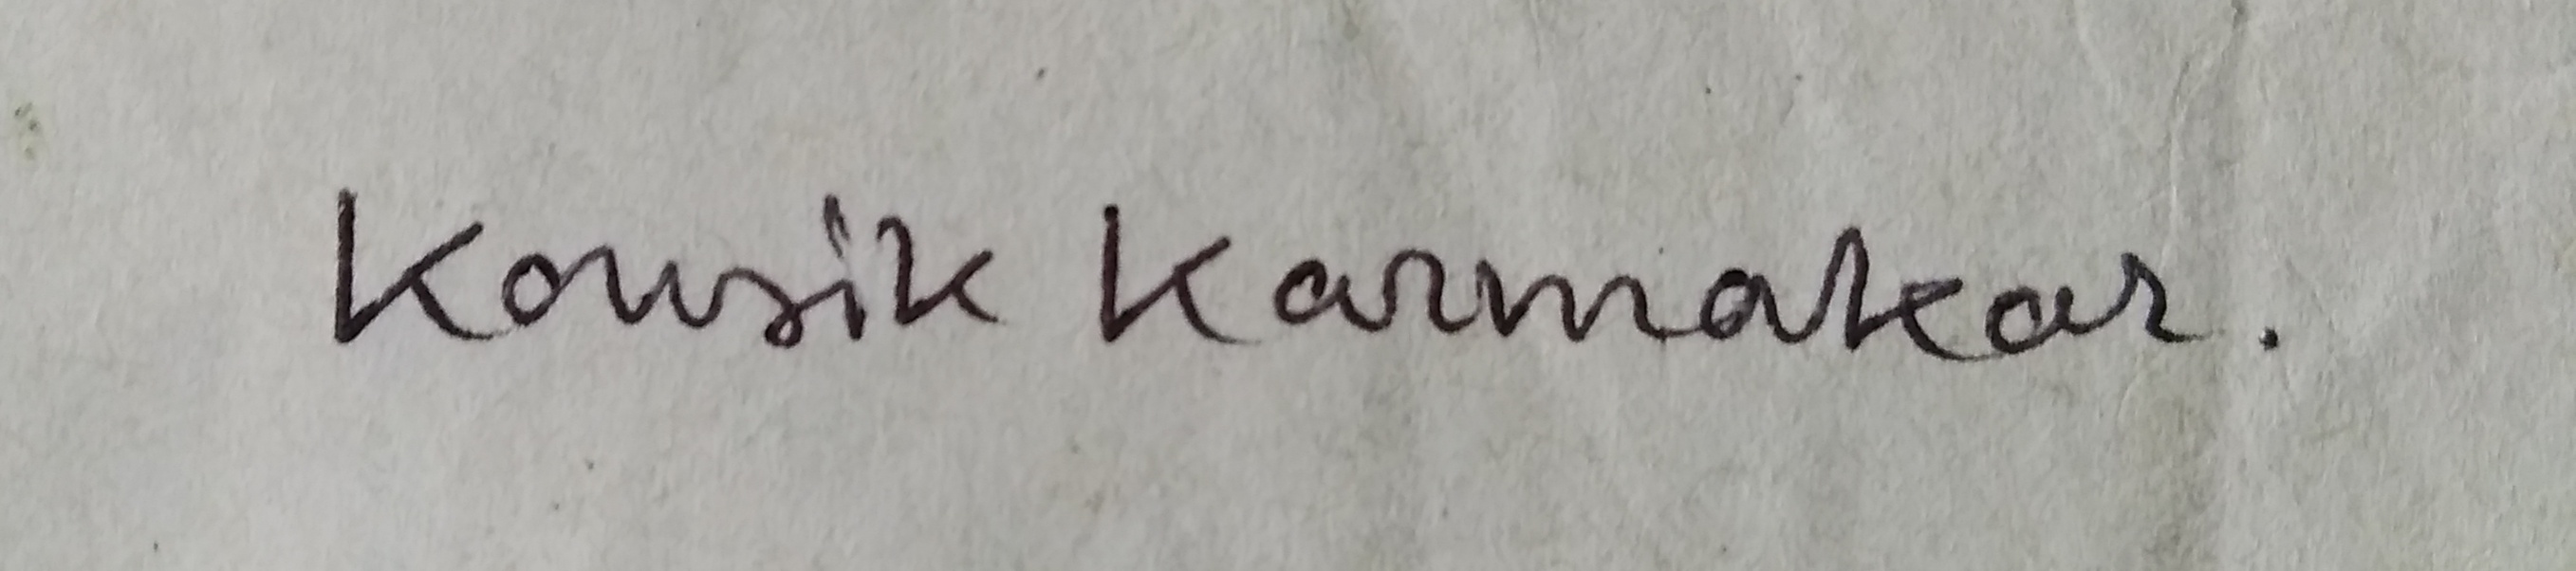 Kousik Karmakar.